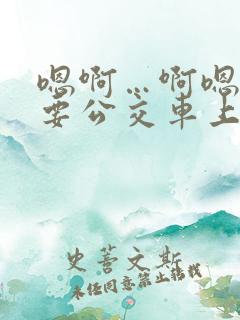 嗯啊…啊嗯
要公交车上
史蓍文斯
未经同意禁止转载